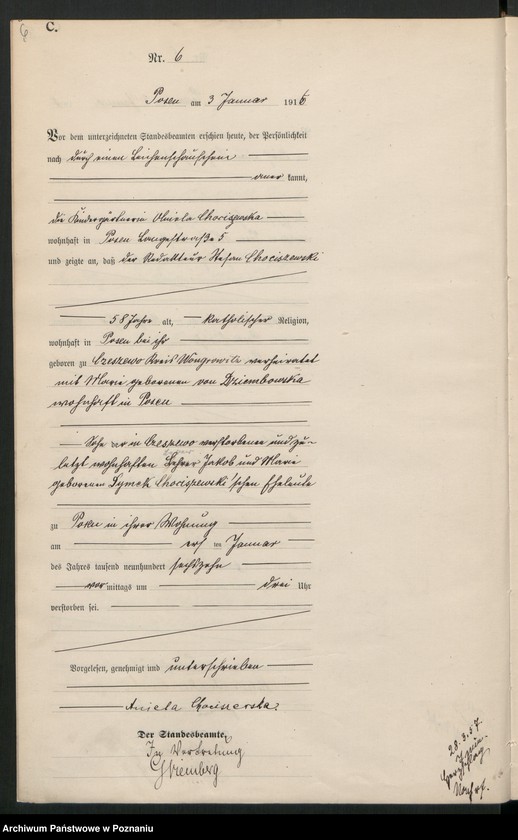 6
C.
Nr. 6
Posen am 3 Januar 1916
Vor dem unterzeichneten Standesbeamten erschien heute, der Persönlichkeit
nach durch einen Leichenschauschein
aner kannt,
die Kindergärtnerin Aniela Chociszewska
wohnhaft in Posen Langestraße 5
und zeigte an, daß der Redakteur Stefan Chociszewski
58 Jahre alt, katholischer Religion,
wohnhaft in Posen bei ihr
geboren zu Czeszewo Kreis Wongrowitz verheiratet
mit Marie geborenen von Dziembowska
wohnhaft in Posen
Sohn der in Czeszewo verstorbenen und zu-
letzt wohnhaften Lehrer Jakob und Marie
geborenen Dymek Chociszewski'schen Eheleute
zu Posen in ihrer Wohnung
am ersten Januar
des Jahres tausend neunhundert sechszehn
vor mittags um drei Uhr
verstorben sei.
Vorgelesen, genehmigt und unterschrieben
Aniela Chociszewska.
Der Standesbeamte,
In Vertretung
28.3.57.
Archiwum Państwowe w Poznaniu